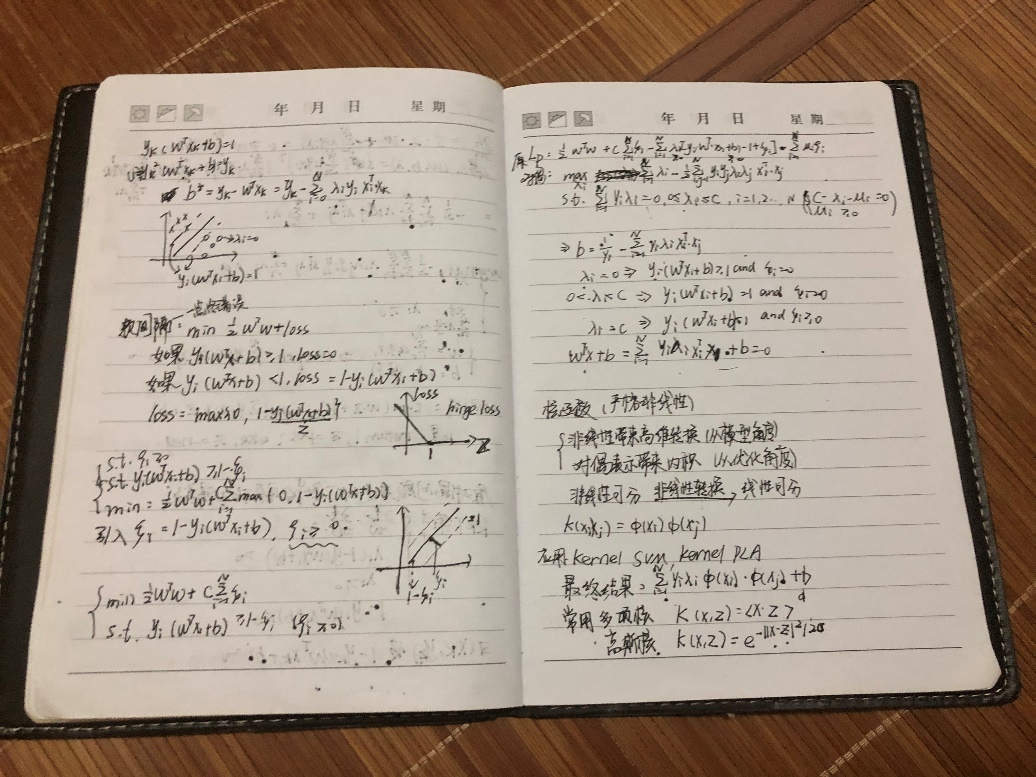 年 月 日 星 期
yₖ(wᵀxₖ+b)=1
b* = yₖ - wᵀxₖ = yₖ - Σᵢ₌₀ᴺ λᵢyᵢxᵢᵀxₖ
→λᵢ=0
yᵢ(wᵀxᵢ+b)=1
软间隔: 一点点错误
min ½wᵀw+loss
如果 yᵢ(wᵀxᵢ+b)≥1, loss=0
如果 yᵢ(wᵀxᵢ+b)<1, loss = 1-yᵢ(wᵀxᵢ+b)
loss = max{0, 1-yᵢ(wᵀxᵢ+b)}
Z
loss
hinge loss
1
Z
s.t. ξᵢ≥0
s.t. yᵢ(wᵀxᵢ+b)≥1-ξᵢ
min = ½wᵀw+CΣᵢ₌₁ᴺ max{0, 1-yᵢ(wᵀxᵢ+b)}
引入 ξᵢ = 1-yᵢ(wᵀxᵢ+b), ξᵢ≥0
1-ξᵢ
min ½wᵀw + CΣᵢ₌₁ᴺ ξᵢ
s.t. yᵢ(wᵀxᵢ+b)≥1-ξᵢ ξᵢ≥0
年 月 日 星 期
原: Lp = ½wᵀw + C
max Σᵢ₌₁ᴺ λᵢ - ½
s.t. Σᵢ₌₁ᴺ yᵢλᵢ=0, 0≤λᵢ≤C, i=1,2..N (C-λᵢ-μᵢ=0
μᵢ≥0)
λᵢ=0 ⇒ yᵢ(wᵀxᵢ+b)≥1 and ξᵢ=0
0<λᵢ≤C ⇒ yᵢ(wᵀxᵢ+b)=1 and ξᵢ=0
λᵢ=C ⇒ yᵢ(wᵀxᵢ+b) 1 and ξᵢ≥0
wᵀx+b = Σᵢ₌₁ᴺ yᵢλᵢxᵢᵀx+b=0
核函数 (严格非线性)
非线性带来高维转换 (从模型角度)
对偶表示带来内积 (从优化角度)
非线性可分 非线性转换→ 线性可分
K(xᵢxⱼ)=Φ(xᵢ)Φ(xⱼ)
应用: kernel SVM, kernel PLA
最终结果: Σᵢ₌₁ᴺ yᵢλᵢΦ(xᵢ)·Φ(xⱼ)+b
常用多项核 K(x,z)=<x·z>ᵈ
高斯核 K(x,z)=e